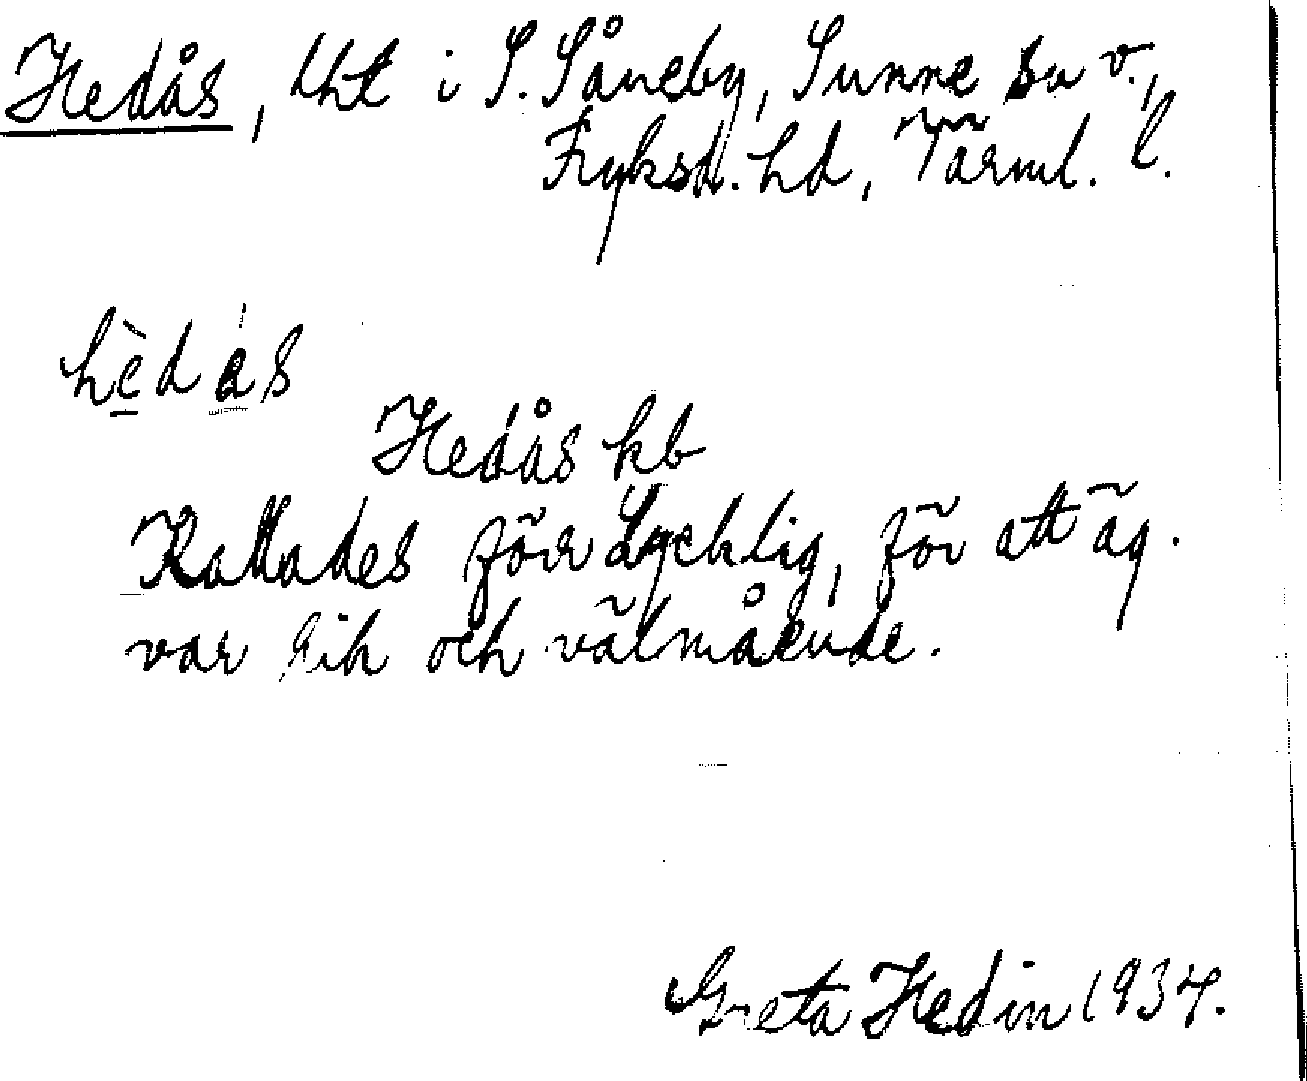 Hedås, lht i S. Såneby, Sunne sn v.,
Fryksd. hd, Värml. l.
hèdås
Hedås kb
Kallades förr Lycklig, för att äg.
var rik och välmående.
Greta Hedin 1934.